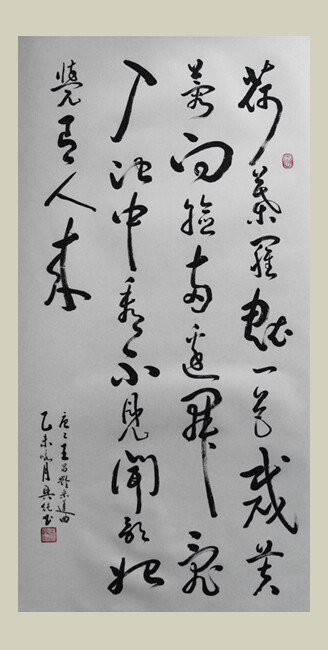 荷葉羅裙一色裁芙
蓉向臉兩邊開亂
入池中看不見聞歌始
覺有人來
唐 王昌齡采蓮曲
乙未 月 書